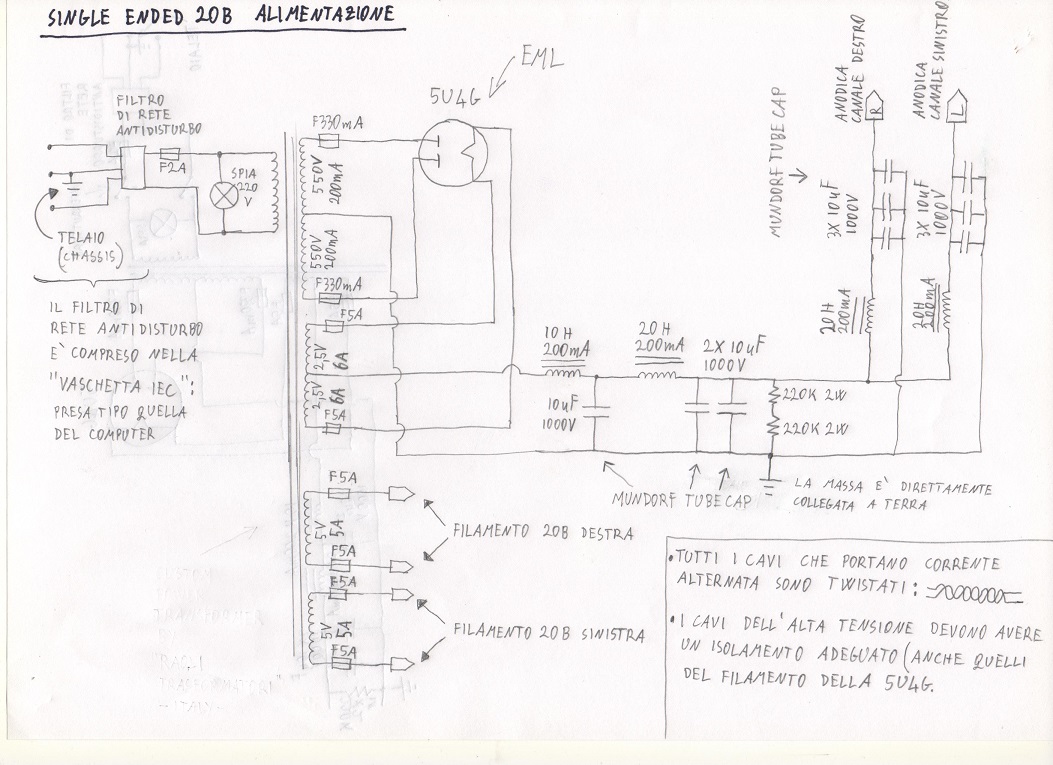 SINGLE ENDED 20B ALIMENTAZIONE
EML
5U4G
FILTRO
DI RETE
ANTIDISTURBO
F2A
SPIA
220
V
TELAIO
(CHASSIS)
IL FILTRO DI
RETE ANTIDISTURBO
E' COMPRESO NELLA
"VASCHETTA IEC":
PRESA TIPO QUELLA
DEL COMPUTER
F330mA
550V
200mA
550V
200mA
F330mA
F5A
2,5V
6A
2,5V
6A
F5A
F5A
5V
5A
F5A
F5A
5V
5A
F5A
FILAMENTO 20B DESTRA
FILAMENTO 20B SINISTRA
10H
200mA
10uF
1000V
20H
200mA
2X10uF
1000V
220K 2W
220K 2W
MUNDORF TUBECAP
LA MASSA E' DIRETTAMENTE
COLLEGATA A TERRA
MUNDORF TUBE CAP
ANODICA
CANALE DESTRO
R
3X10uF
1000V
20H
200mA
ANODICA
CANALE SINISTRO
L
3X10uF
1000V
20H
200mA
•TUTTI I CAVI CHE PORTANO CORRENTE
ALTERNATA SONO TWISTATI:
•I CAVI DELL'ALTA TENSIONE DEVONO AVERE
UN ISOLAMENTO ADEGUATO (ANCHE QUELLI
DEL FILAMENTO DELLA 5U4G.